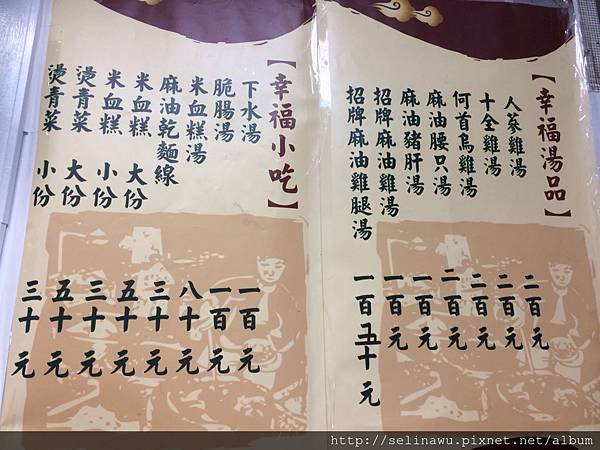 【幸福湯品】
人蔘雞湯 二百元
十全雞湯 二百元
何首烏雞湯 二百元
麻油腰只湯 二百元
麻油豬肝湯 一百元
招牌麻油雞湯 一百元
招牌麻油雞腿湯 一百五十元
【幸福小吃】
下水湯 一百元
脆腸湯 一百元
米血糕湯 八十元
麻油乾麵線 三十元
米血糕 大份 五十元
米血糕 小份 三十元
燙青菜 大份 五十元
燙青菜 小份 三十元
http://selinawu.pixnet.net/album